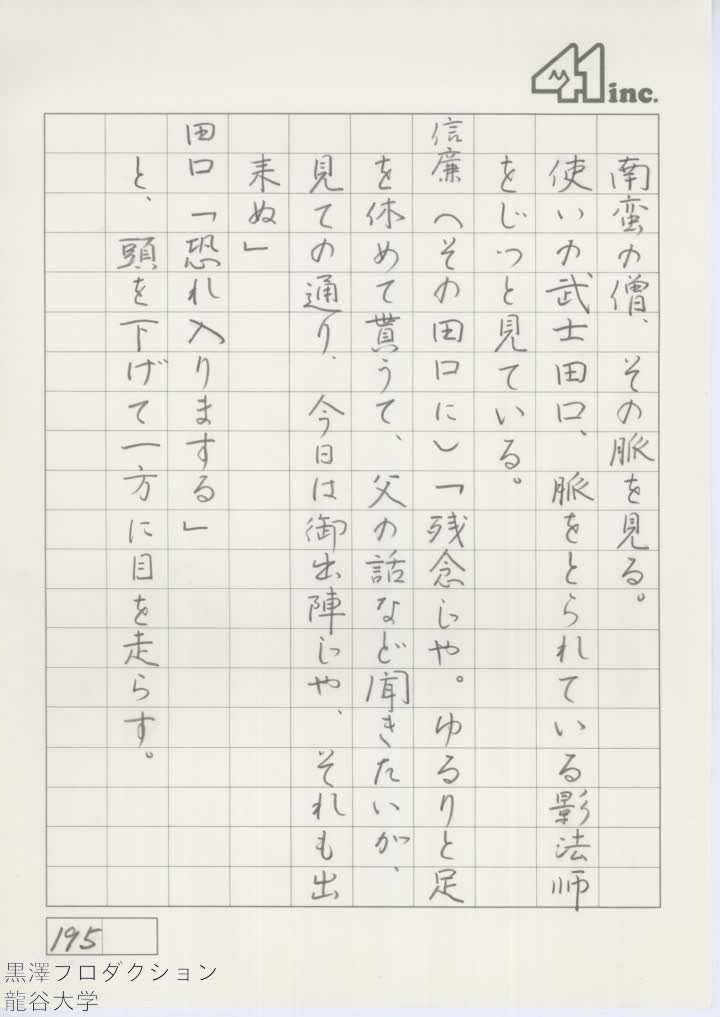 41 inc.
南蛮の僧、その脈を見る。
使いの武士田口、脈をとられている影法師
をじっと見ている。
信廉（その田口に）「残念じゃ。ゆるりと足
を休めて貰うて、父の話など聞きたいが、
見ての通り、今日は御出陣じゃ、それも出
来ぬ」
田口「恐れ入りまする」
と、頭を下げて一方に目を走らす。
195
黒澤プロダクション
龍谷大学